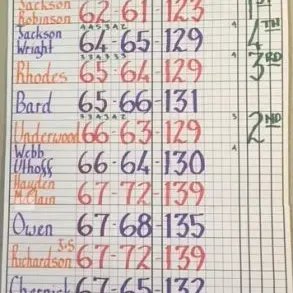 Jackson
Robinson 62-61-123 1ST
Jackson
Wright 64-65-129 4TH
Rhodes 65-64-129 3RD
Bard 65-66-131
Underwood 66-63-129 2ND
Webb
Uthoff 66-64-130
Hayden
McClain 67-72-139
Owen 67-68-135
3-S
Richardson 67-72-139
67-65-132